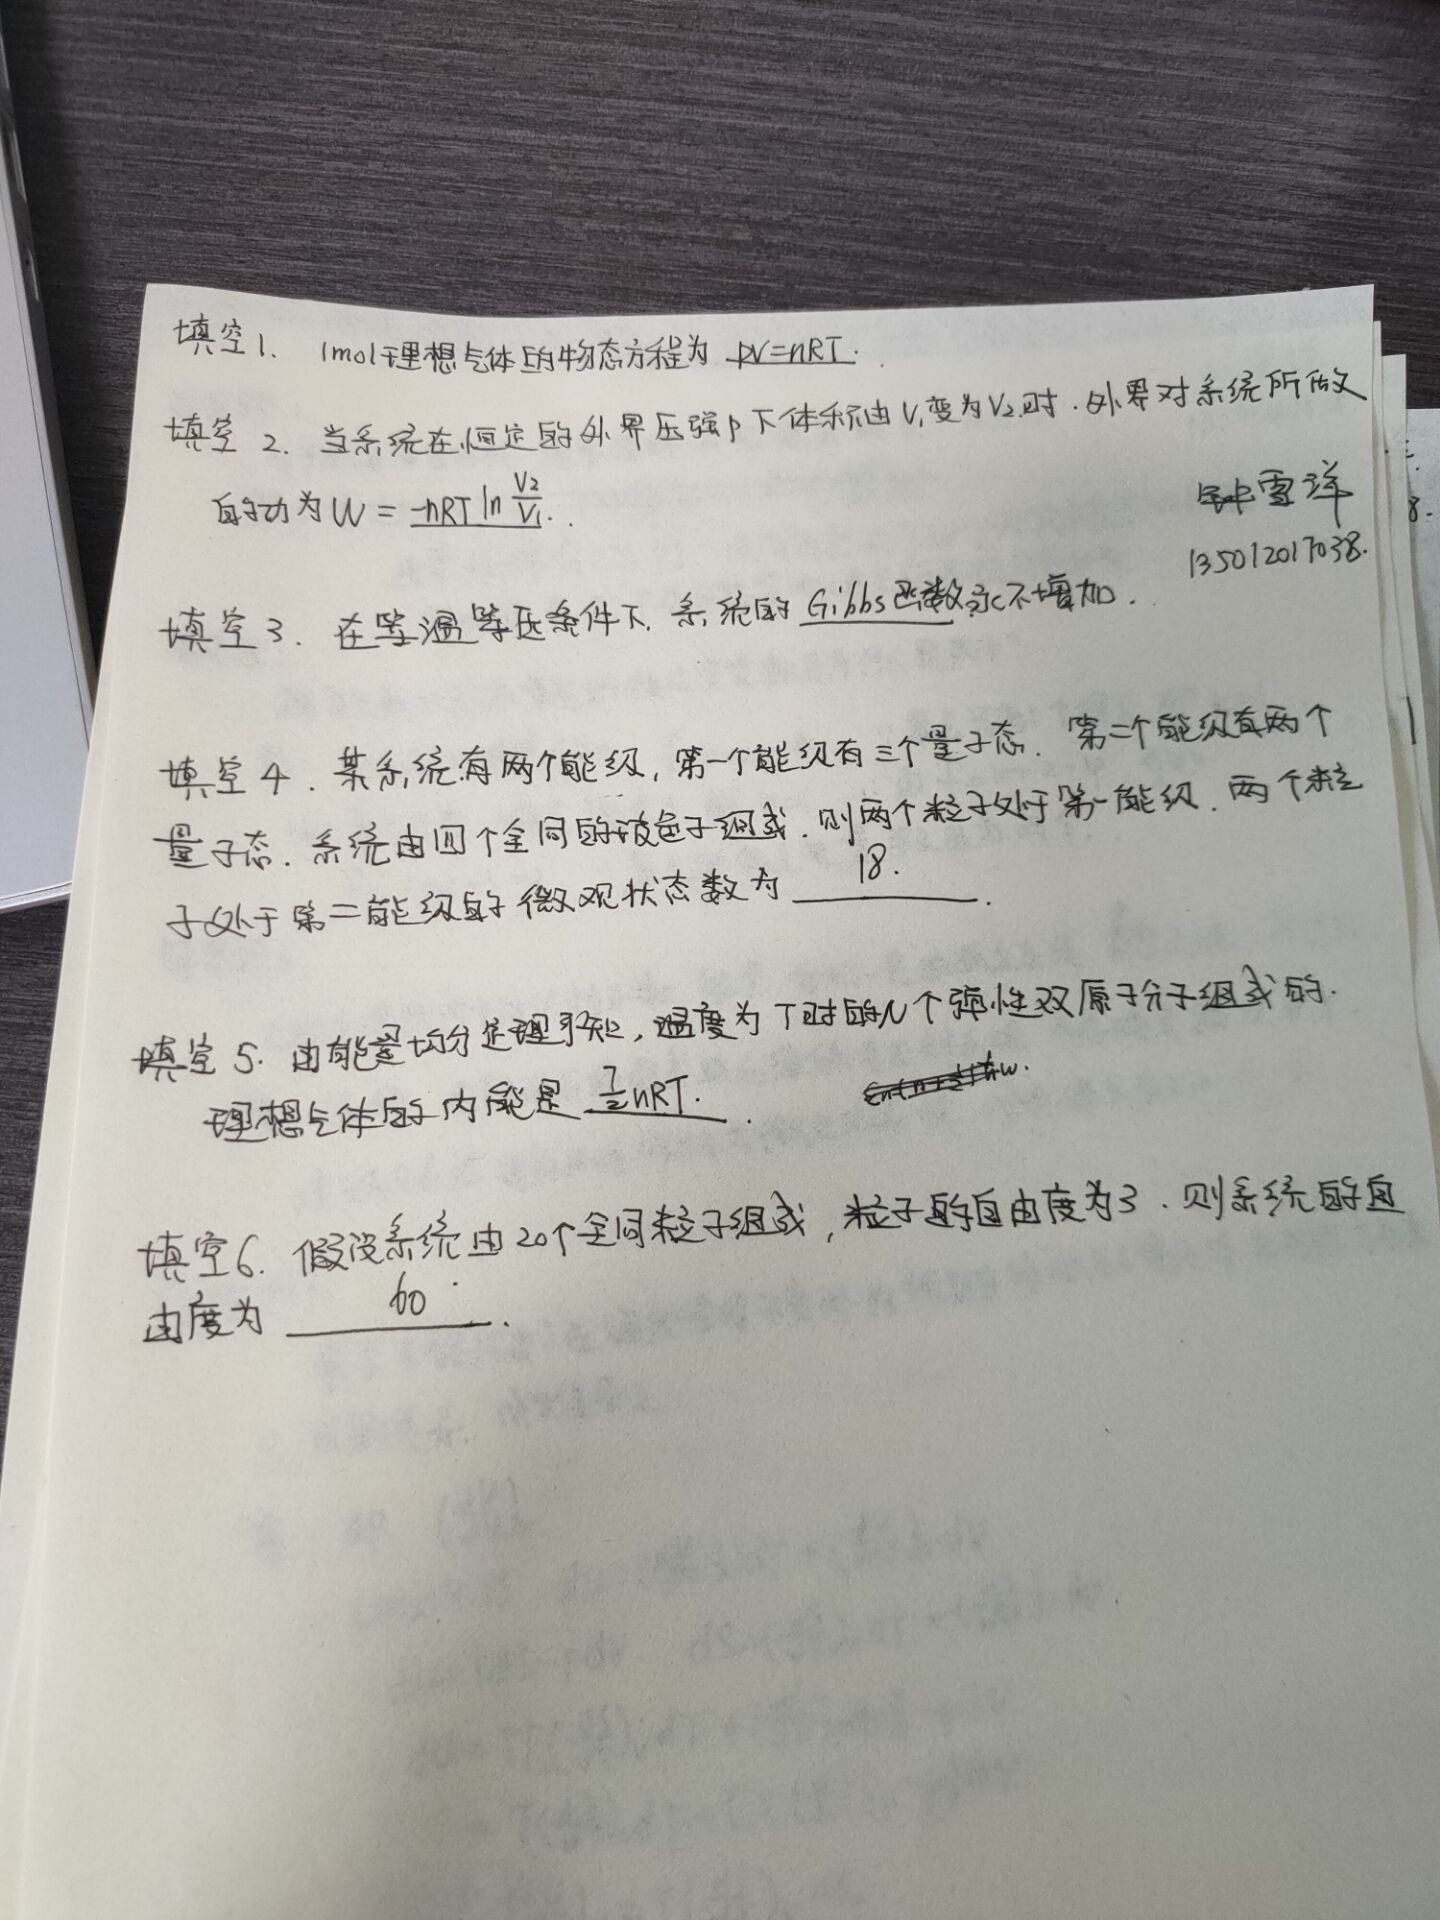 填空1. 1mol理想气体的物态方程为 pV=nRT.
填空2. 当系统在恒定的外界压强p下体积由V₁变为V₂时.外界对系统所做
的功为W = -nRT ln V₂/V₁.
钟雪洋
135012017038.
填空3. 在等温等压条件下.系统的 Gibbs函数永不增加.
填空4. 某系统有两个能级,第一个能级有三个量子态.第二个能级有两个
量子态.系统由四个全同的玻色子组成.则两个粒子处于第一能级.两个粒
子处于第二能级的微观状态数为 18.
填空5. 由能量均分定理可知,温度为T时的N个弹性双原子分子组成的.
理想气体的内能是 7/2 nRT.
填空6. 假设系统由20个全同粒子组成,粒子的自由度为3.则系统的自
由度为 60.